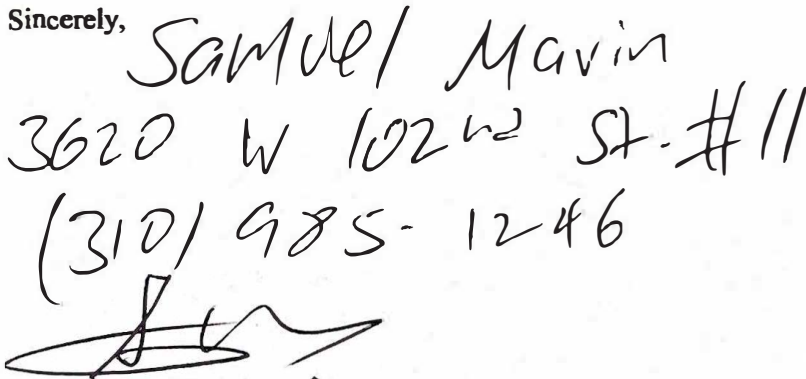 Sincerely,
Samuel Marin
3620 W 102nd St. #11
(310) 985-1246